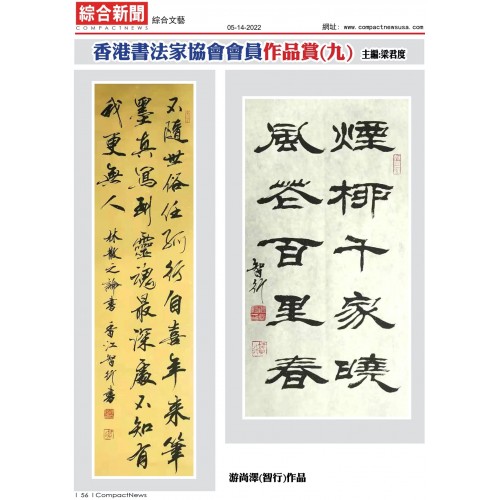 綜合新聞
COMPACTNEWS
綜合文藝
05-14-2022
網址：www.compactnewsusa.com
香港書法家協會會員作品賞(九) 主編:梁君度
不隨世俗任孤行自喜年來筆
墨真寫到靈魂最深處不知有
我更無人
林散之論書 香江智行書
煙柳千家曉
風花百里春
智行
游尚澤(智行)作品
| 56 | CompactNews